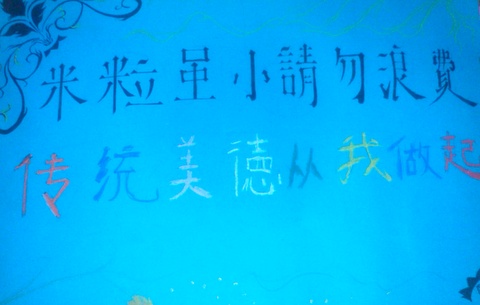 米粒虽小請勿浪費
传统美德从我做起